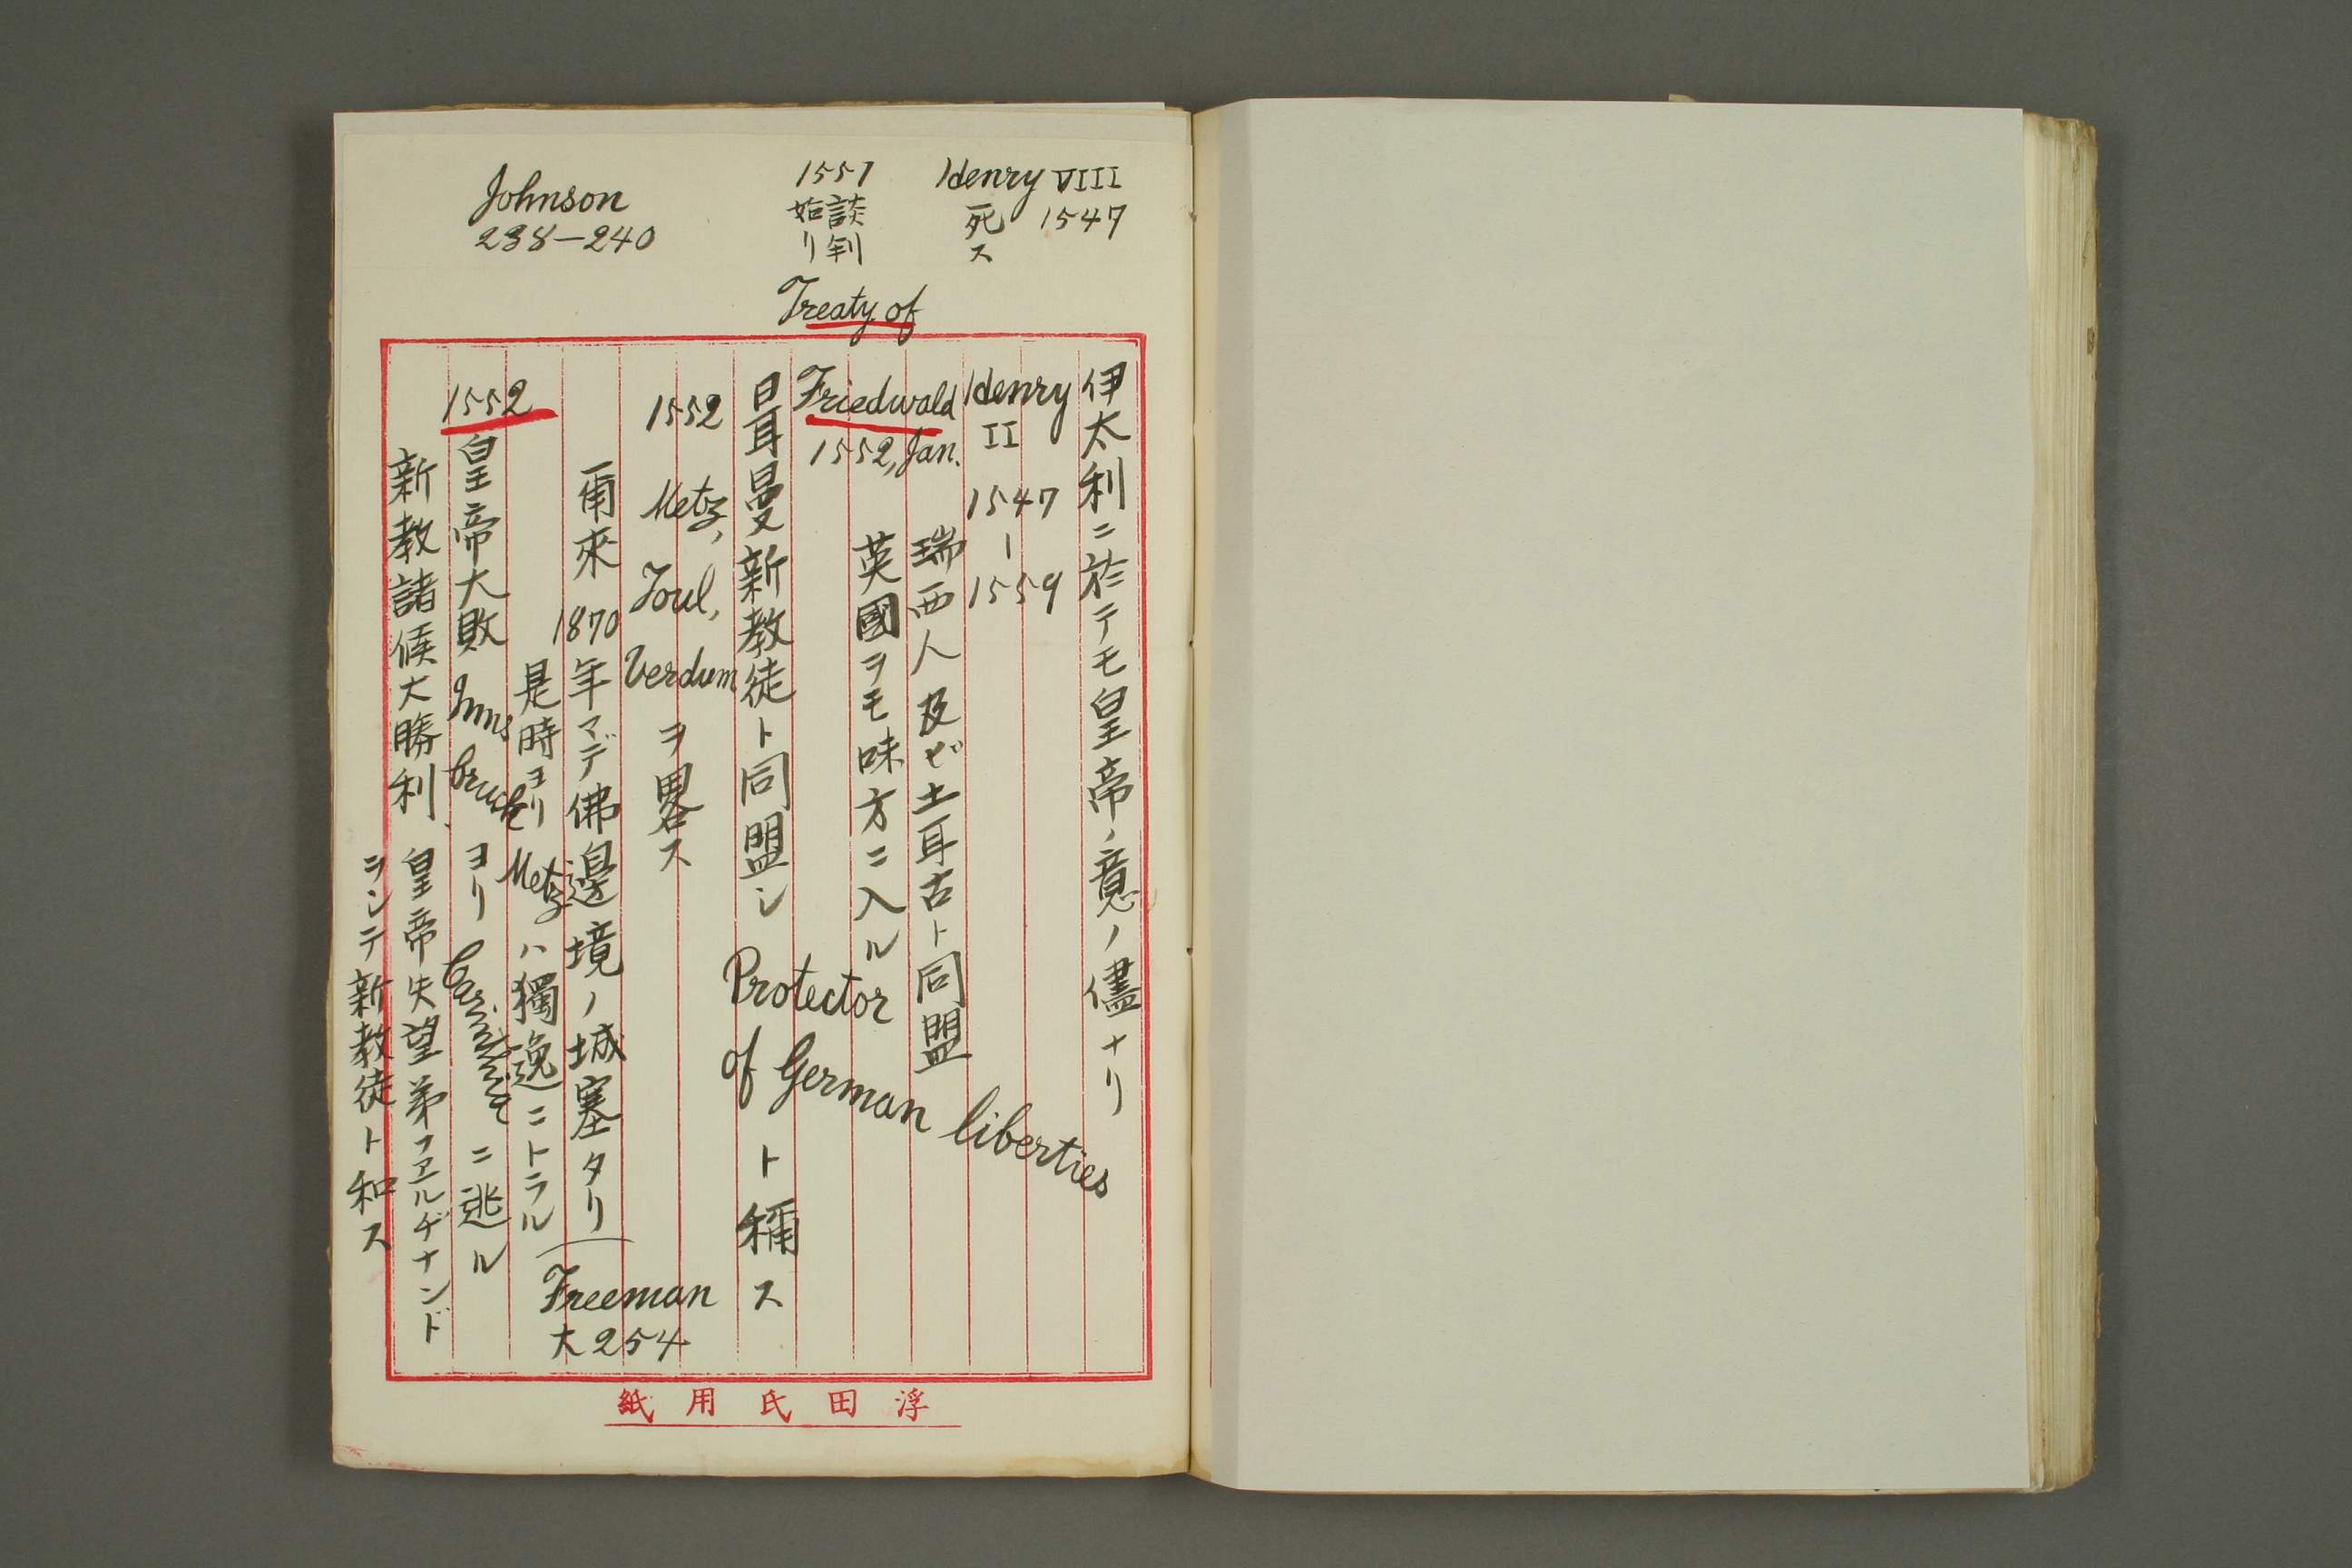 Henry VIII
1547
死ス
1551
談判
始リ
Johnson
238—240
伊太利ニ於テモ皇帝ノ意ノ儘ナリ
Henry II 1547–1559
瑞西人及ビ土耳古ト同盟
英國ヲモ味方ニ入ル
Treaty of
Friedwald
1552, Jan.
日耳曼新教徒ト同盟シ Protector of German liberties ト稱ス
1552 Metz, Toul, Verdum ヲ畧ス
爾來 1870 年マデ佛邊境ノ城塞タリ
Freeman
大254
是時ヨリ Metz ハ獨逸ニトラル
1552 皇帝大敗 Innsbruck ヨリ ニ逃ル
新教諸侯大勝利、皇帝失望弟フェルヂナンド
ヲシテ新教徒ト和ス
浮田氏用紙